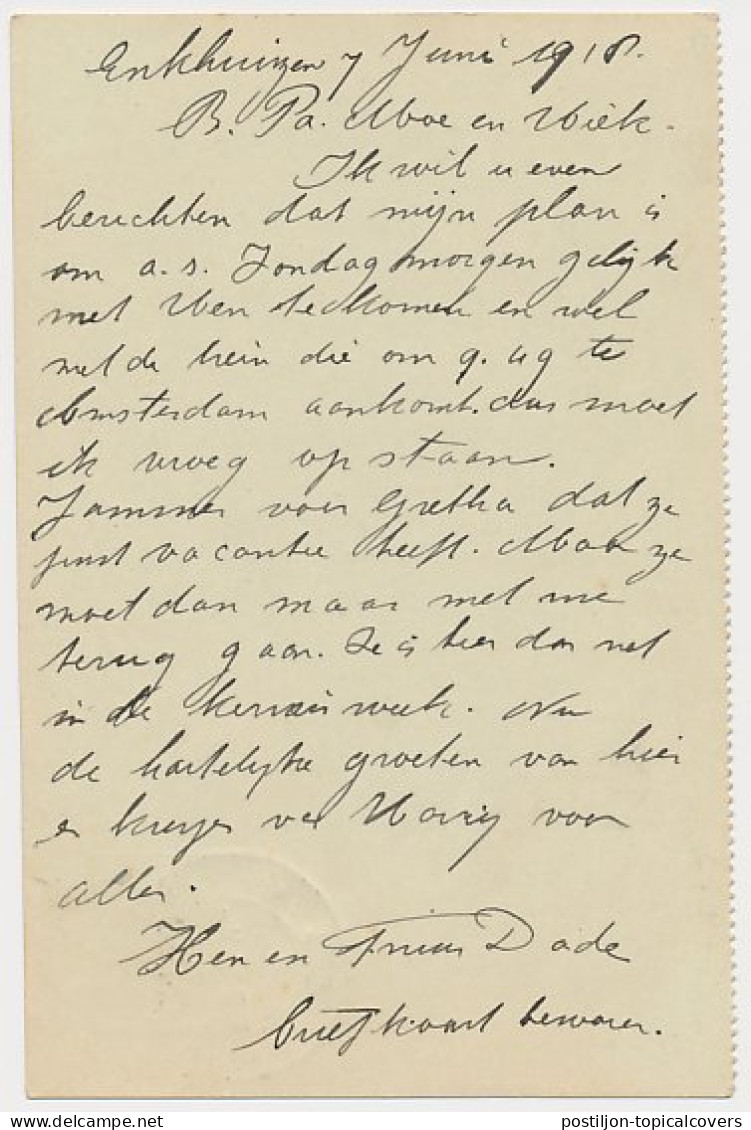 Enkhuizen 7 Juni 1918.
B. Pa. Moe en Wiek.
Ik wil u even
berichten dat mijn plan is
om a.s. Zondag morgen gelijk
met Wen te komen en wel
met de trein die om 9.49 te
Amsterdam aankomt. dus moet
ik vroeg op staan.
Jammer voor Gretha dat ze
just vacantie heeft. Maar ze
moet dan maar met me
terug gaan. Ze is hier dan net
in de kermis week. Nu
de hartelijke groeten van hier
en kusjes van Harry voor
allen.
Hen en Dade
briefkaart bewaren.
postiljon-topicalcovers